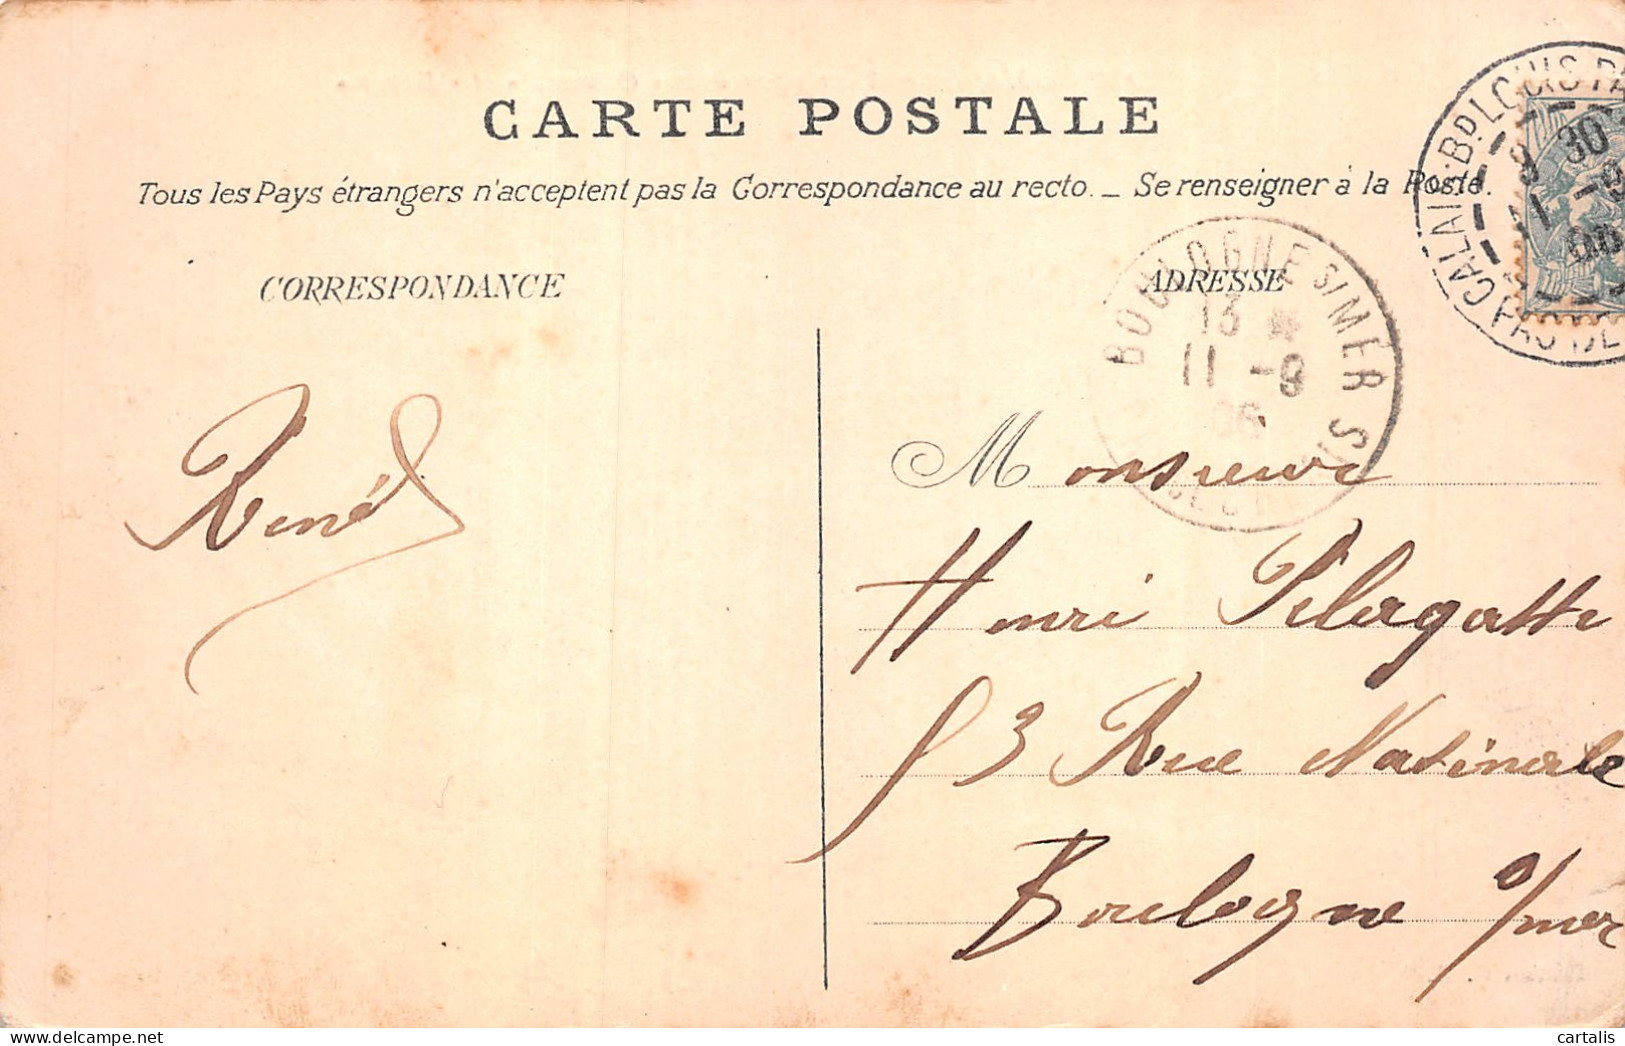 CARTE POSTALE
Tous les Pays étrangers n'acceptent pas la Correspondance au recto. _ Se renseigner à la Poste.
CORRESPONDANCE
ADRESSE
CALAIS-BD LOUIS PA
9 30
11 -9
06
PAS DE
BOULOGNE S/MER
13
11 -9
06
René
Monsieur
Henri
53 Rue Nationale
Boulogne s/mer
cartalis